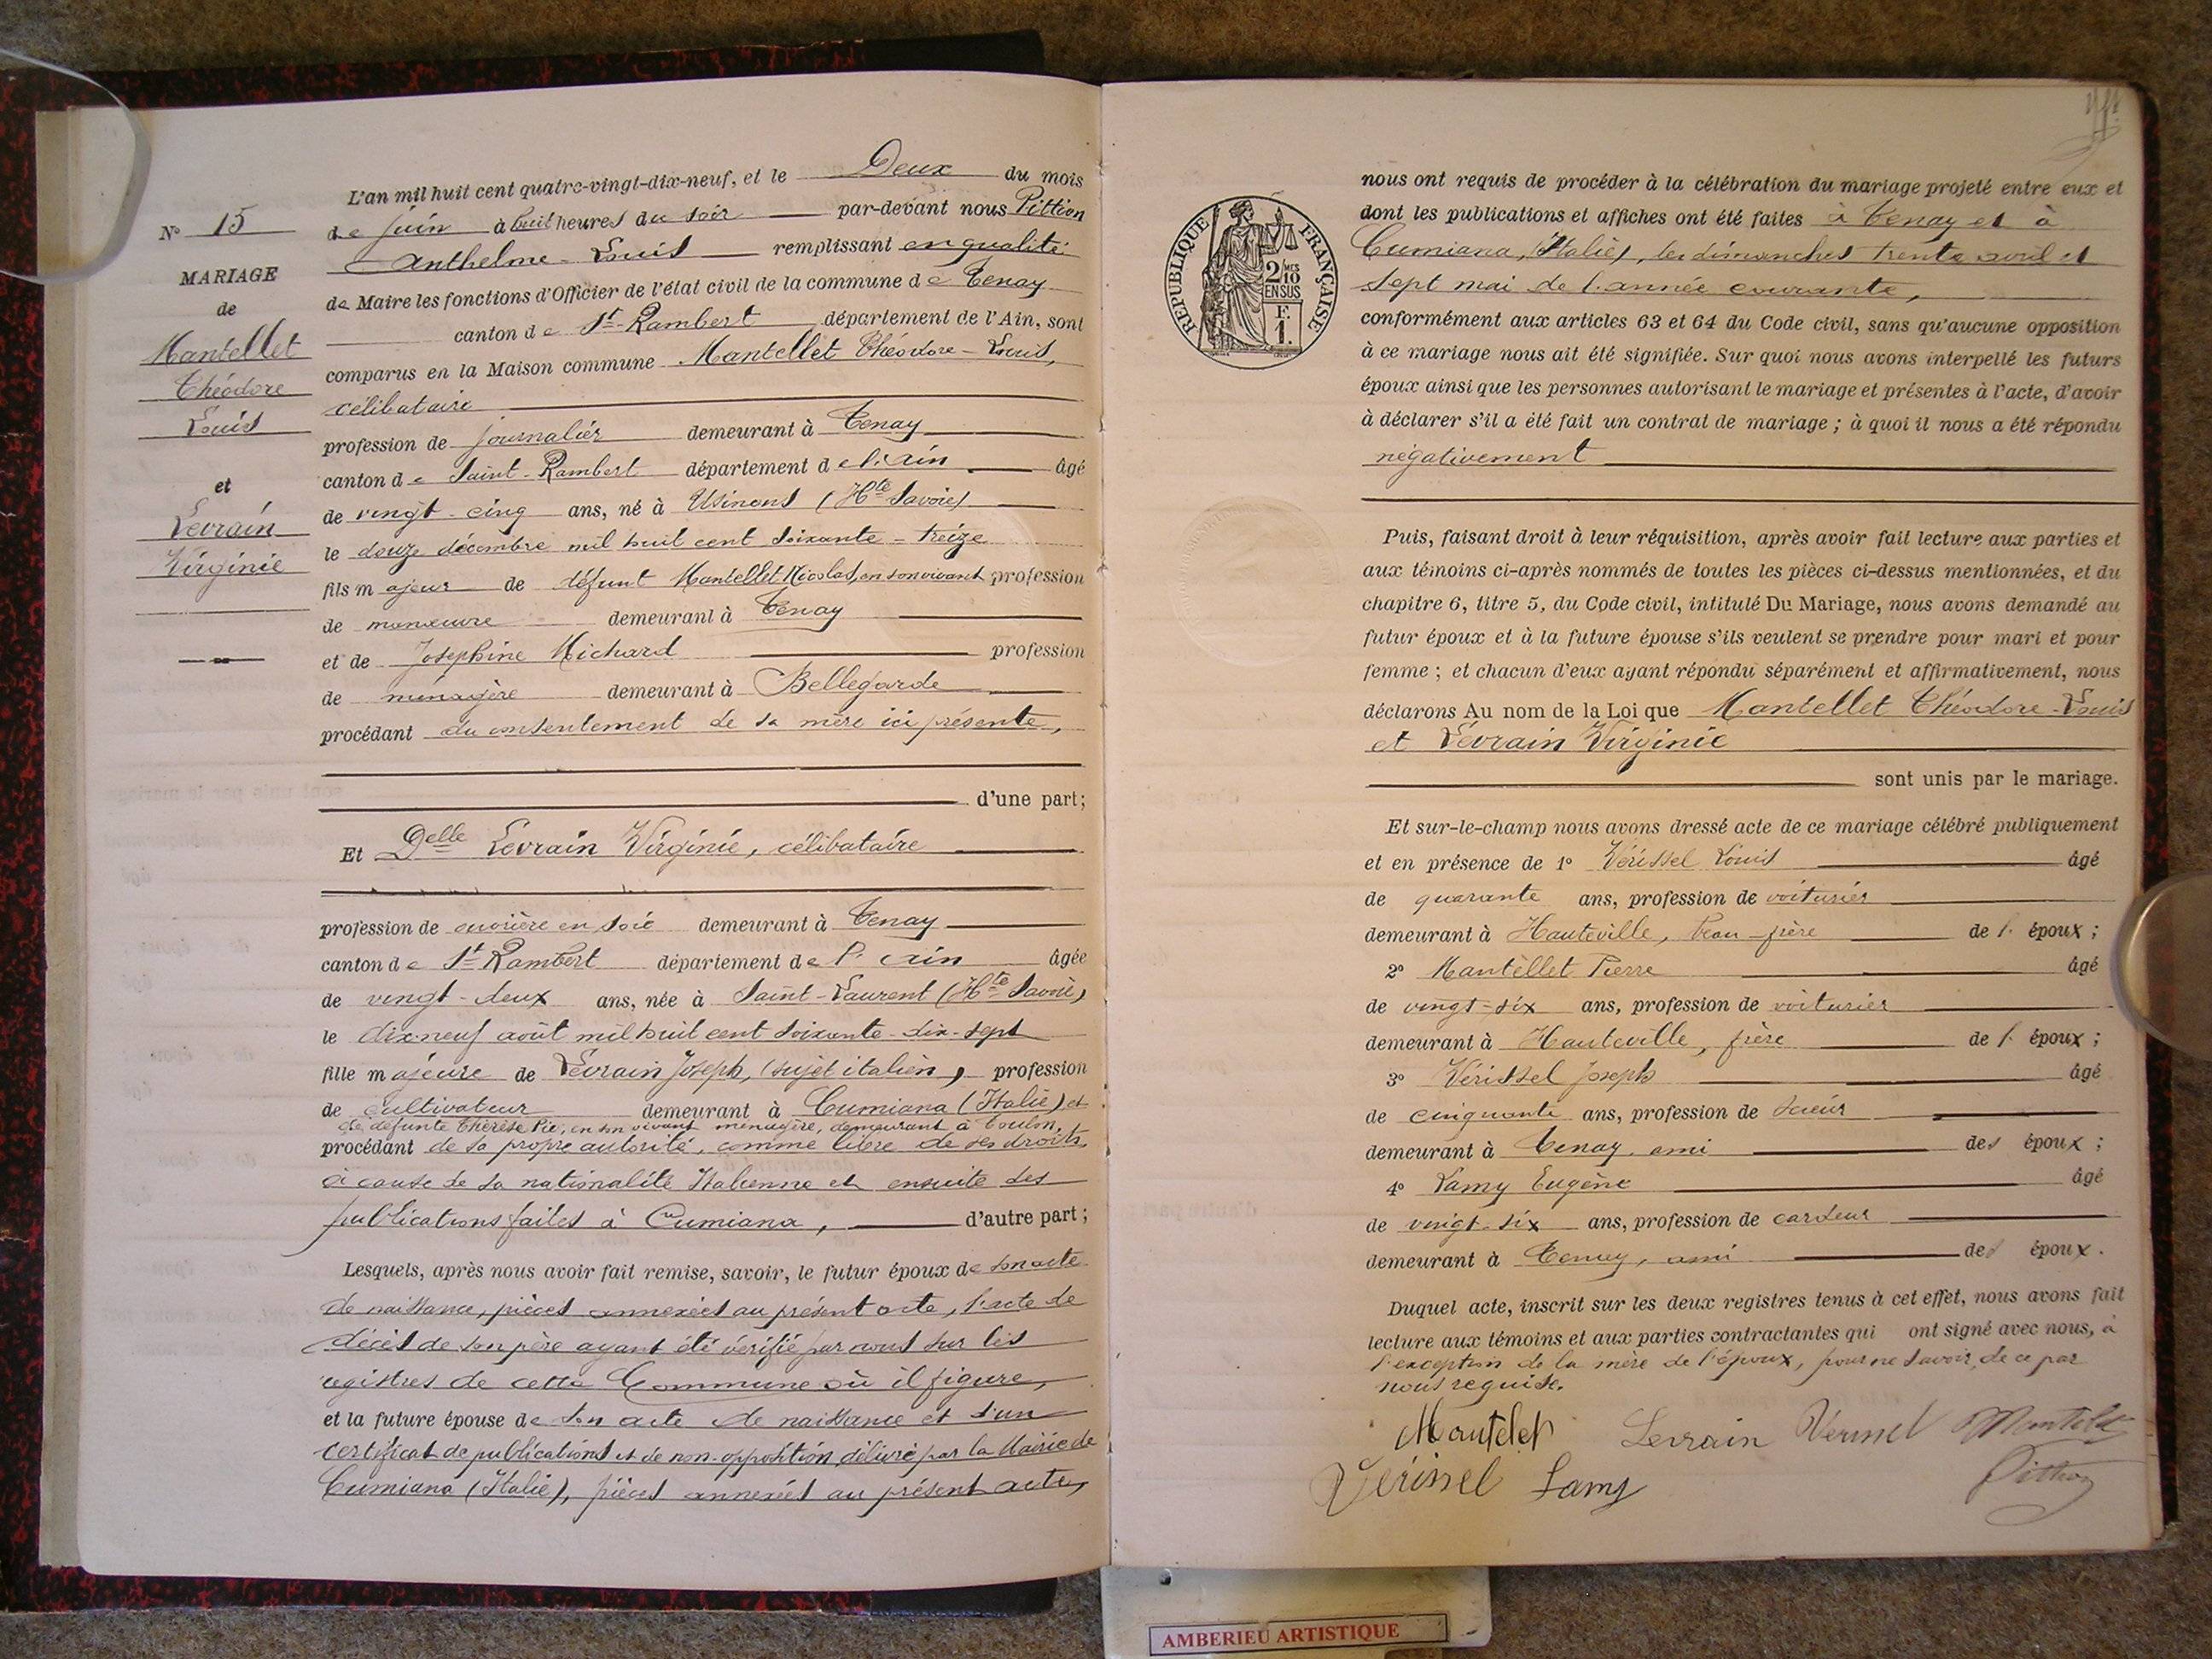 N° 15
MARIAGE
de
Mantellet
Théodore
Louis
et
Levrain
Virginie
L'an mil huit cent quatre-vingt-dix-neuf, et le Deux du mois
de Juin à huit heures du soir par-devant nous Pittion
Anthelme-Louis remplissant en qualité
de Maire les fonctions d'Officier de l'état civil de la commune de Tenay
canton de St-Rambert département de l'Ain, sont
comparus en la Maison commune Mantellet Théodore-Louis,
célibataire
profession de journalier demeurant à Tenay
canton de Saint-Rambert département de l'Ain âgé
de vingt-cinq ans, né à Usinens (Hte Savoie)
le douze décembre mil huit cent soixante-treize
fils majeur de défunt Mantellet Nicolas, en son vivant profession
de manœuvre demeurant à Tenay
et de Joséphine Michard profession
de ménagère demeurant à Bellegarde
procédant du consentement de sa mère ici présente,
d'une part;
Et Delle Levrain Virginie, célibataire
profession de ouvrière en soie demeurant à Tenay
canton de St-Rambert département de l'Ain âgée
de vingt-deux ans, née à Saint-Laurent (Hte Savoie)
le dix-neuf août mil huit cent soixante-dix-sept
fille majeure de Levrain Joseph, (sujet italien), profession
de cultivateur demeurant à Cumiana (Italie) et
de défunte Thérèse Pic, en son vivant ménagère, demeurant à Toulon,
procédant de sa propre autorité, comme libre de ses droits
à cause de sa nationalité Italienne et ensuite des
publications faites à Cumiana, d'autre part;
Lesquels, après nous avoir fait remise, savoir, le futur époux de son acte
de naissance, pièces annexées au présent acte, l'acte de
décès de son père ayant été vérifié par nous sur les
registres de cette Commune où il figure,
et la future épouse de son acte de naissance et d'un
certificat de publications et de non-opposition délivré par la Mairie de
Cumiana (Italie), pièces annexées au présent acte,
RÉPUBLIQUE FRANÇAISE
2/10MES
EN SUS
F.
1.
nous ont requis de procéder à la célébration du mariage projeté entre eux et
dont les publications et affiches ont été faites à Tenay et à
Cumiana, (Italie), les dimanches trente avril et
sept mai de l'année courante,
conformément aux articles 63 et 64 du Code civil, sans qu'aucune opposition
à ce mariage nous ait été signifiée. Sur quoi nous avons interpellé les futurs
époux ainsi que les personnes autorisant le mariage et présentes à l'acte, d'avoir
à déclarer s'il a été fait un contrat de mariage ; à quoi il nous a été répondu
négativement
Puis, faisant droit à leur réquisition, après avoir fait lecture aux parties et
aux témoins ci-après nommés de toutes les pièces ci-dessus mentionnées, et du
chapitre 6, titre 5, du Code civil, intitulé Du Mariage, nous avons demandé au
futur époux et à la future épouse s'ils veulent se prendre pour mari et pour
femme ; et chacun d'eux ayant répondu séparément et affirmativement, nous
déclarons Au nom de la Loi que Mantellet Théodore-Louis
et Levrain Virginie
sont unis par le mariage.
Et sur-le-champ nous avons dressé acte de ce mariage célébré publiquement
et en présence de 1° Vérissel Louis âgé
de quarante ans, profession de voiturier
demeurant à Hauteville, beau-frère de l' époux ;
2° Mantellet Pierre âgé
de vingt-six ans, profession de voiturier
demeurant à Hauteville, frère de l' époux ;
3° Vérissel Joseph âgé
de cinquante ans, profession de scieur
demeurant à Tenay, ami des époux ;
4° Lamy Eugène âgé
de vingt-six ans, profession de cardeur
demeurant à Tenay, ami des époux.
Duquel acte, inscrit sur les deux registres tenus à cet effet, nous avons fait
lecture aux témoins et aux parties contractantes qui ont signé avec nous, à
l'exception de la mère de l'époux, pour ne savoir, de ce par
nous requise.
Mantelet Levrain Verissel Mantelet
Vérissel Lamy Pittion
AMBERIEU ARTISTIQUE